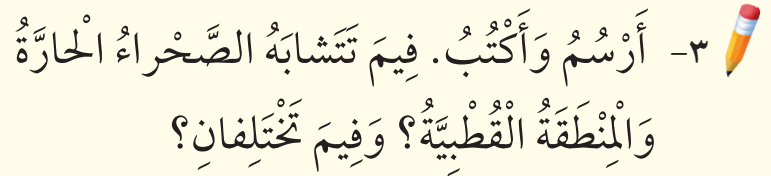 ٣- أَرْسُمُ وَأَكْتُبُ. فِيمَ تَتَشابَهُ الصَّحْراءُ الْحارَّةُ
وَالْمِنْطَقَةُ الْقُطْبِيَّةُ؟ وَفِيمَ تَخْتَلِفانِ؟